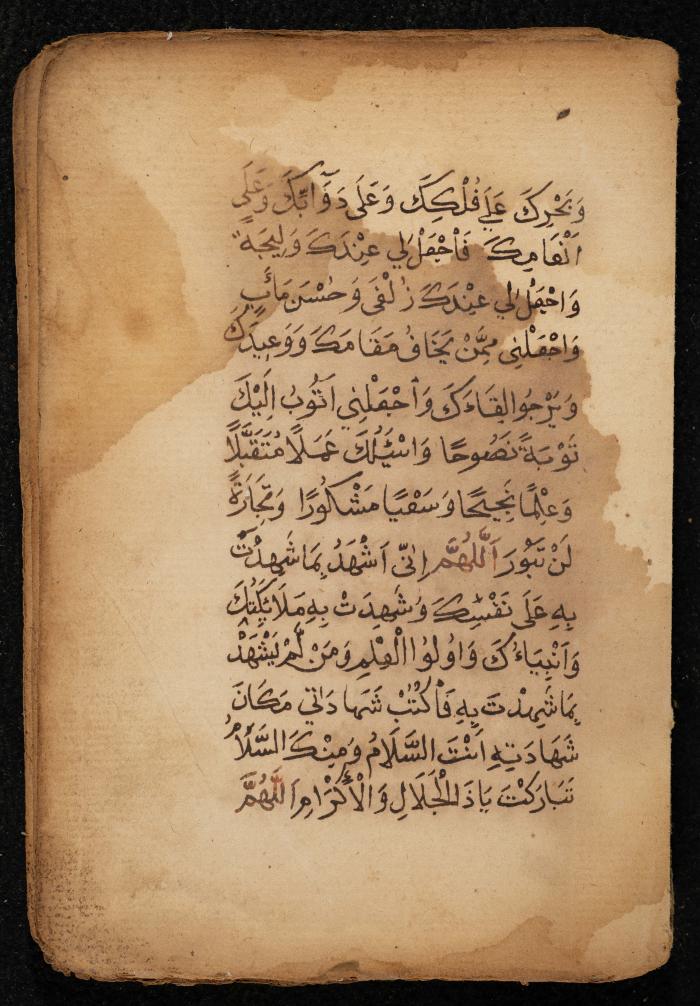 وَبَحْرِكَ عَلَى فُلْكِكَ وَعَلَى دَوَآبِّكَ وَعَلَى
اَنْعَامِكَ فَاجْعَلْ لِي عِنْدَكَ وَلِيجَةً
وَاجْعَلْ لِي عِنْدَكَ زُلْفَى وَحُسْنَ مَأٰبٍ
وَاجْعَلْنِى مِمَّنْ يَخَافُ مَقَامَكَ وَوَعِيدَكَ
وَيَرْجُوا لِقَاءَكَ وَاجْعَلْنِي اَتُوبُ اِلَيْكَ
تَوْبَةً نَصُوحًا وَاَسْئَلُكَ عَمَلًا مُتَقَبَّلًا
وَعِلْمًا نَجِيحًا وَسَعْيًا مَشْكُورًا وَتِجَارَةً
لَنْ تَبُورَ اَللّٰهُمَّ اِنِّى اَشْهَدُ بِمَا شَهِدْتَ
بِهِ عَلَى نَفْسِكَ وَشَهِدَتْ بِهِ مَلَائِكَتُكَ
وَاَنْبِيَاءُكَ وَاُولُوا الْعِلْمِ وَمَنْ لَمْ يَشْهَدْ
بِمَا شَهِدْتَ بِهِ فَاكْتُبْ شَهَادَاتِي مَكَانَ
شَهَادَتِهِ اَنْتَ السَّلَامُ وَمِنْكَ السَّلَامُ
تَبَارَكْتَ يَاذَا الْجَلَالِ وَالْاِكْرَامِ اَللّٰهُمَّ